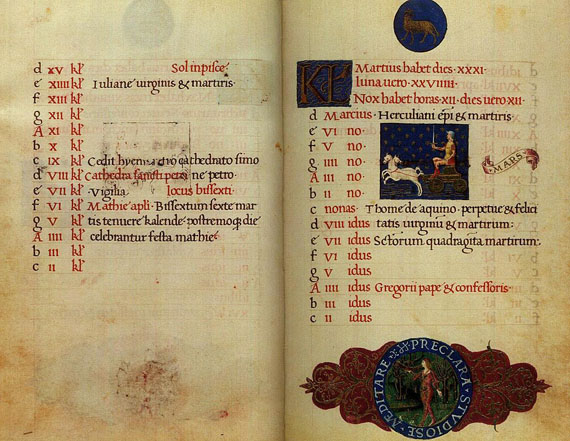 d xv kl' Sol in pisce·
e xiiii kl' Iuliane virginis & martiris·
f xiii kl'
g xii kl'
A xi kl'
b x kl'
c ix kl' Cedit hyems
d viii kl' Cathedra sancti petri
e vii kl' Vigilia· locus bissexti·
f vi kl' Mathie apli· Bissextum sexte mar
g v kl' tis tenuere kalende postremoq; die
A iiii kl' celebrantur festa mathie·
b iii kl'
c ii kl'
KL Martius habet dies·xxxi·
luna uero·xxviiii·
Nox habet horas·xii·dies uero·xii·
d Marcius· Herculiani epi & martiris·
e vi no·
f v no·
g iiii no·
A iii no·
b ii no·
MARS
c nonas Thome de aquino· perpetue & felici
d viii idus tatis uirginu & martirum·
e vii idus Sctorum quadragita martirum·
f vi idus
g v idus
A iiii idus Gregorii pape & confessoris·
b iii idus
c ii idus
PRECLARA STVDIOSE MEDITARE